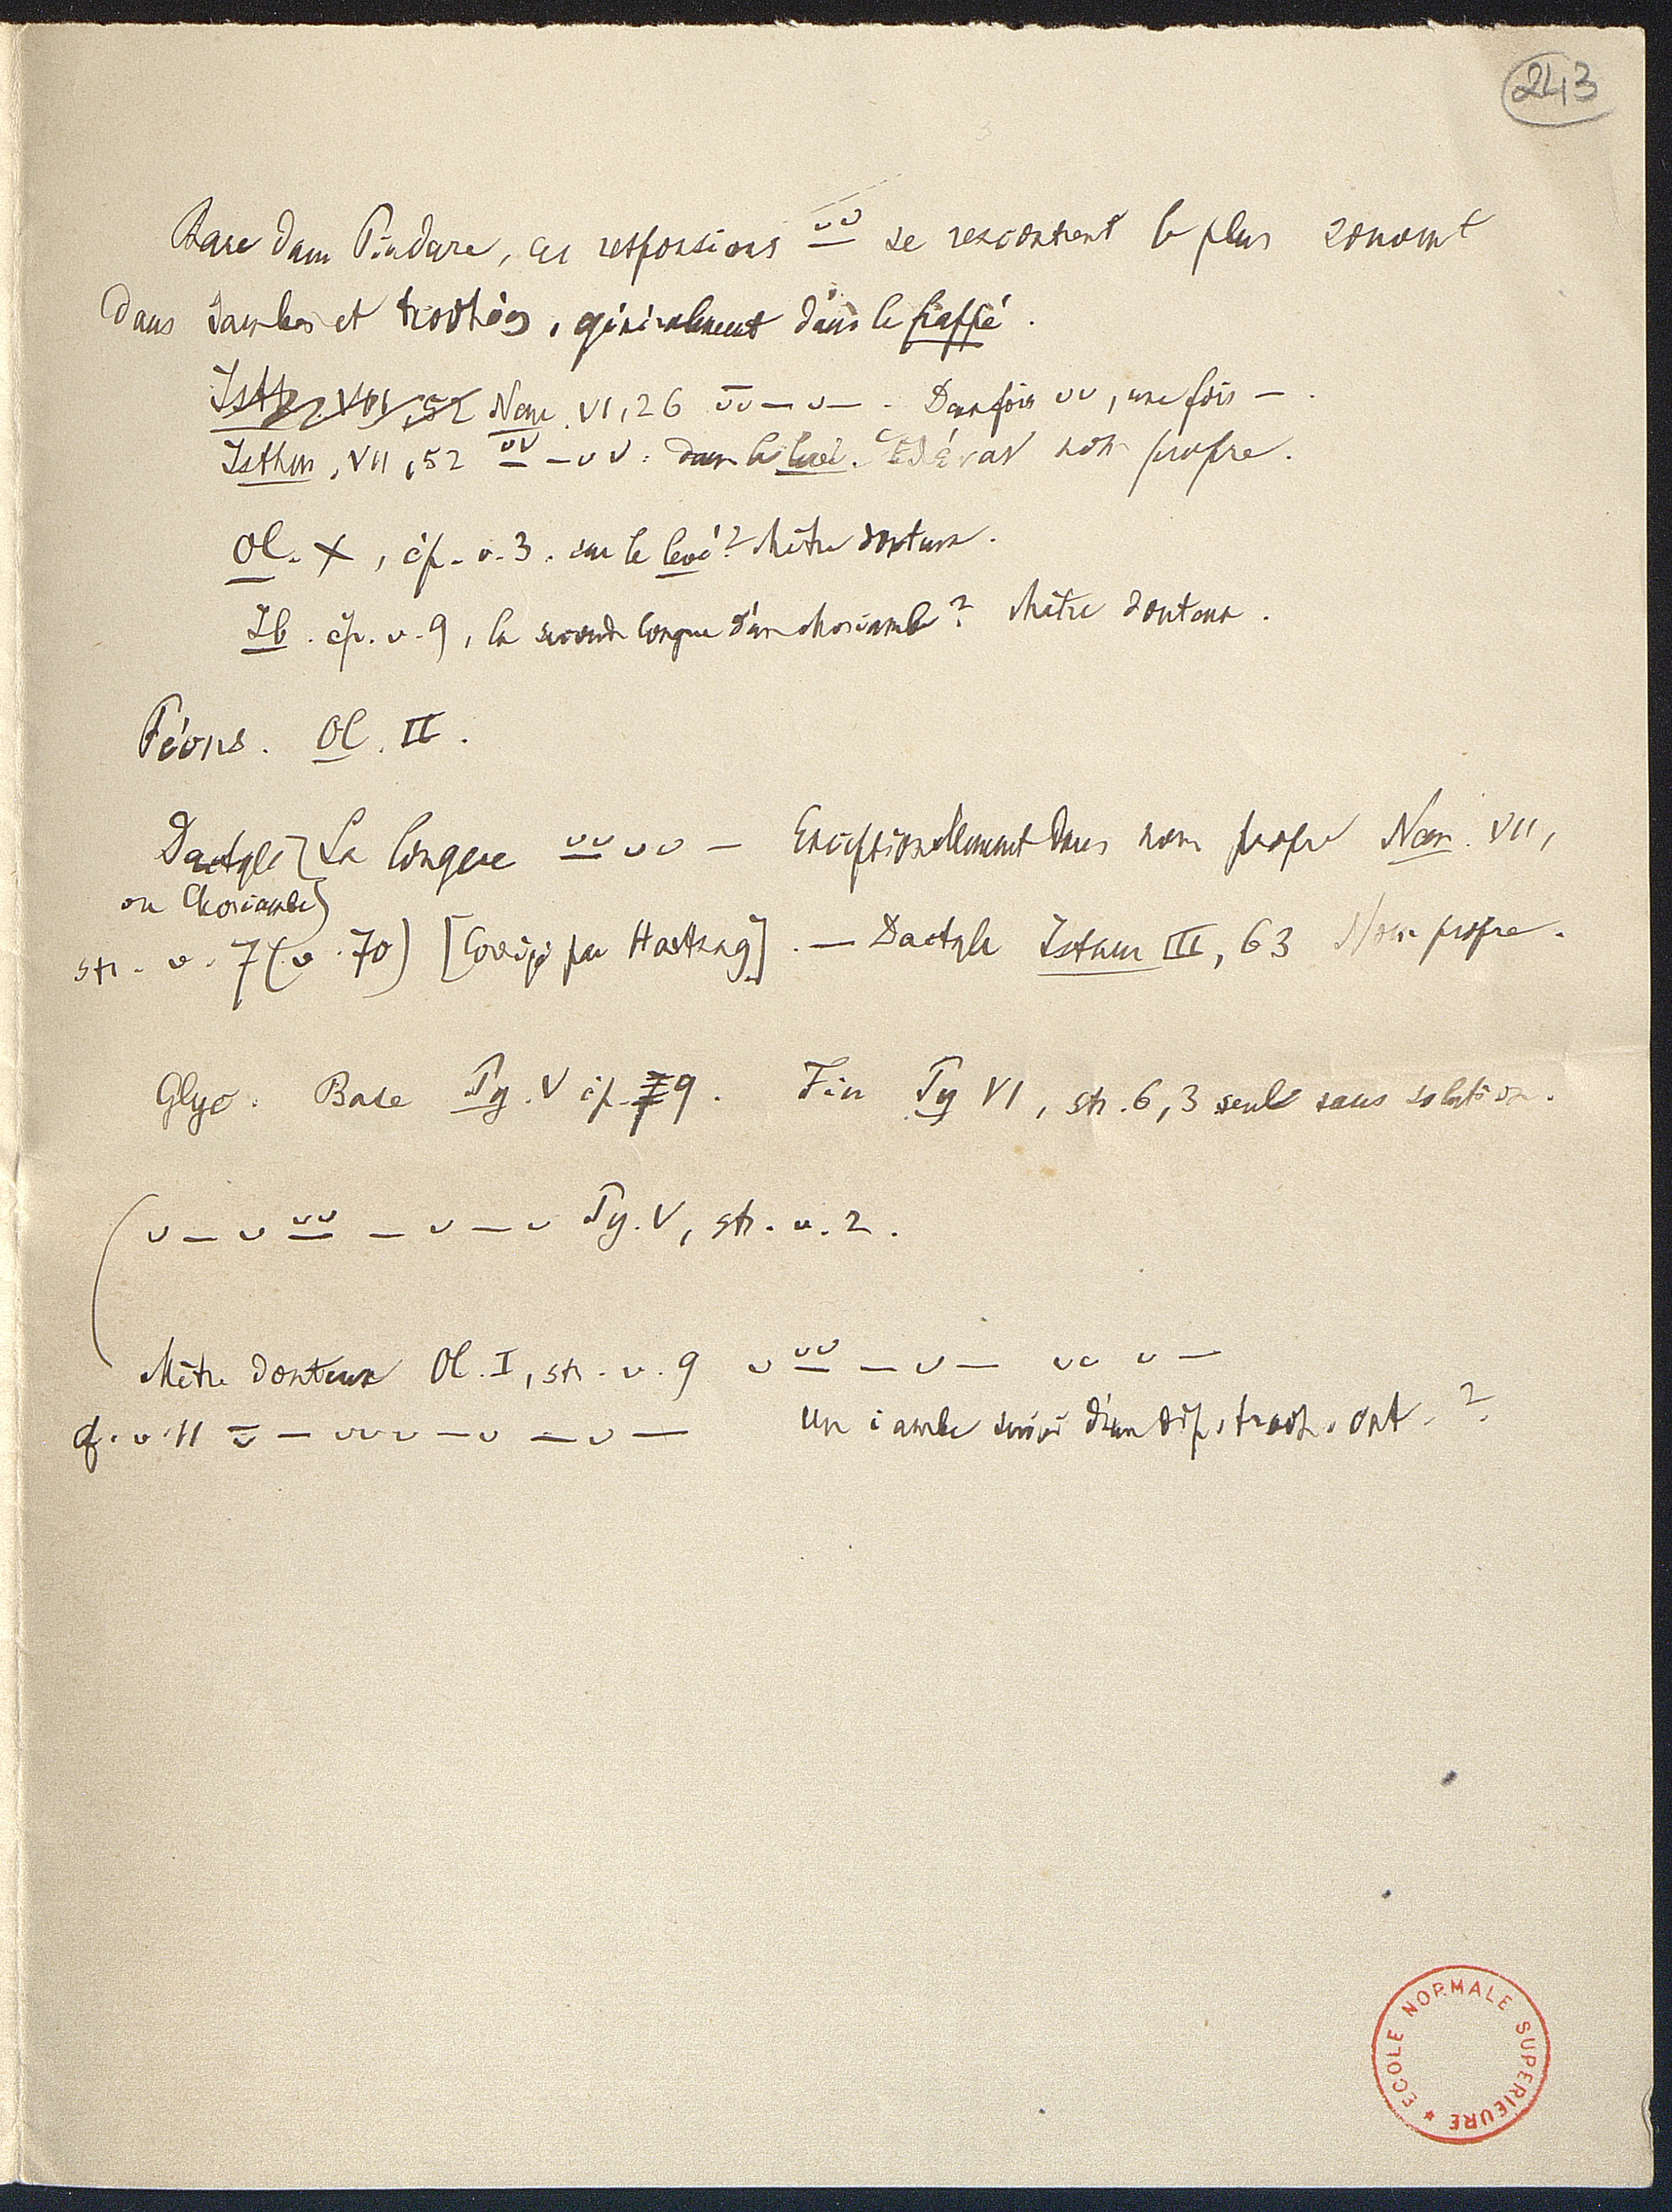 243
Rare dans Pindare, ces responsions ⏔ se rencontrent le plus souvent
dans iambes et trochées, généralement dans le frappé.
Isthm VII, 52 Nem. VI, 26 ⏓⏑ – ⏑ – . Deux fois ⏑⏑, une fois – .
Isthm, VII, 52 ⏔ – ⏑ ⏑ . dans le levé. nom propre.
Ol. X, ép. v. 3. sur le levé? Mètre douteux.
Ib. ép. v. 9, la seconde longue d'un choriambe? Mètre douteux.
Péons. Ol. II.
Dactyle } La longue ⏔ ⏑ ⏑ – Exceptionellement dans nom propre Nem. VII,
ou Choriambe
str. v. 7 (v. 70) [Corrigé par Hartung]. — Dactyle Isthm III, 63 Nom propre.
Glyc. Base Py. V ép. 9. Fin Py VI, str. 6, 3 seul sans solution.
( ⏑ – ⏑ ⏔ – ⏑ – ⏑ Py. V, str. v. 2.
Mètre douteux Ol. I, str. v. 9 ⏑ ⏔ – ⏑ – ⏑⏑ ⏑ –
cf. v. 11 ⏓ – ⏑⏑⏑ – ⏑ – ⏑ – Un iambe suivi d'un dip. troch. cat. ?
ECOLE NORMALE SUPERIEURE